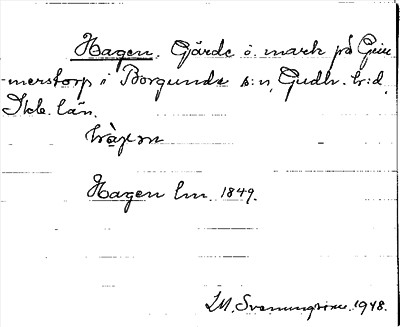 Hagen. Gärde o. mark på Grim
-merstorp i Borgunda s:n, Gudh. h:d,
Skb. län.
hàgen
Hagen lm 1849.
I.M. Svenungsson. 1948.